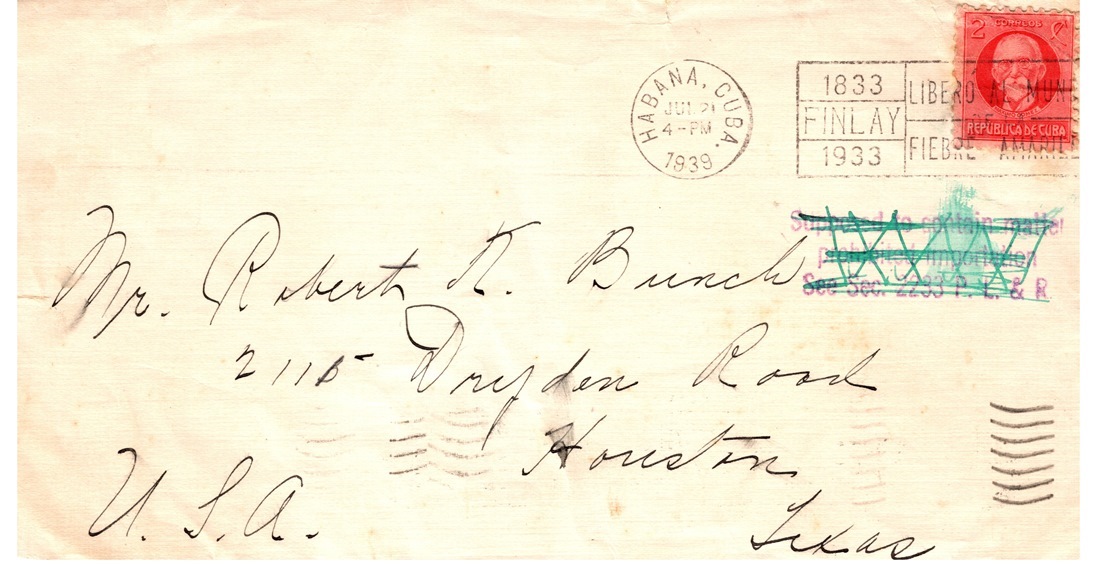 2 CORREOS
REPÚBLICA DE CUBA
HABANA, CUBA.
JUL 21
4-PM
1939
1833
FINLAY
1933
LIBERÓ AL MUN
DE
FIEBRE AMARILL
Supposed to contain matter
prohibited importation
See Sec. 2233 P. L. & R.
Mr. Robert K. Bunch
2115 Dryden Road
Houston
U. S. A.
Texas